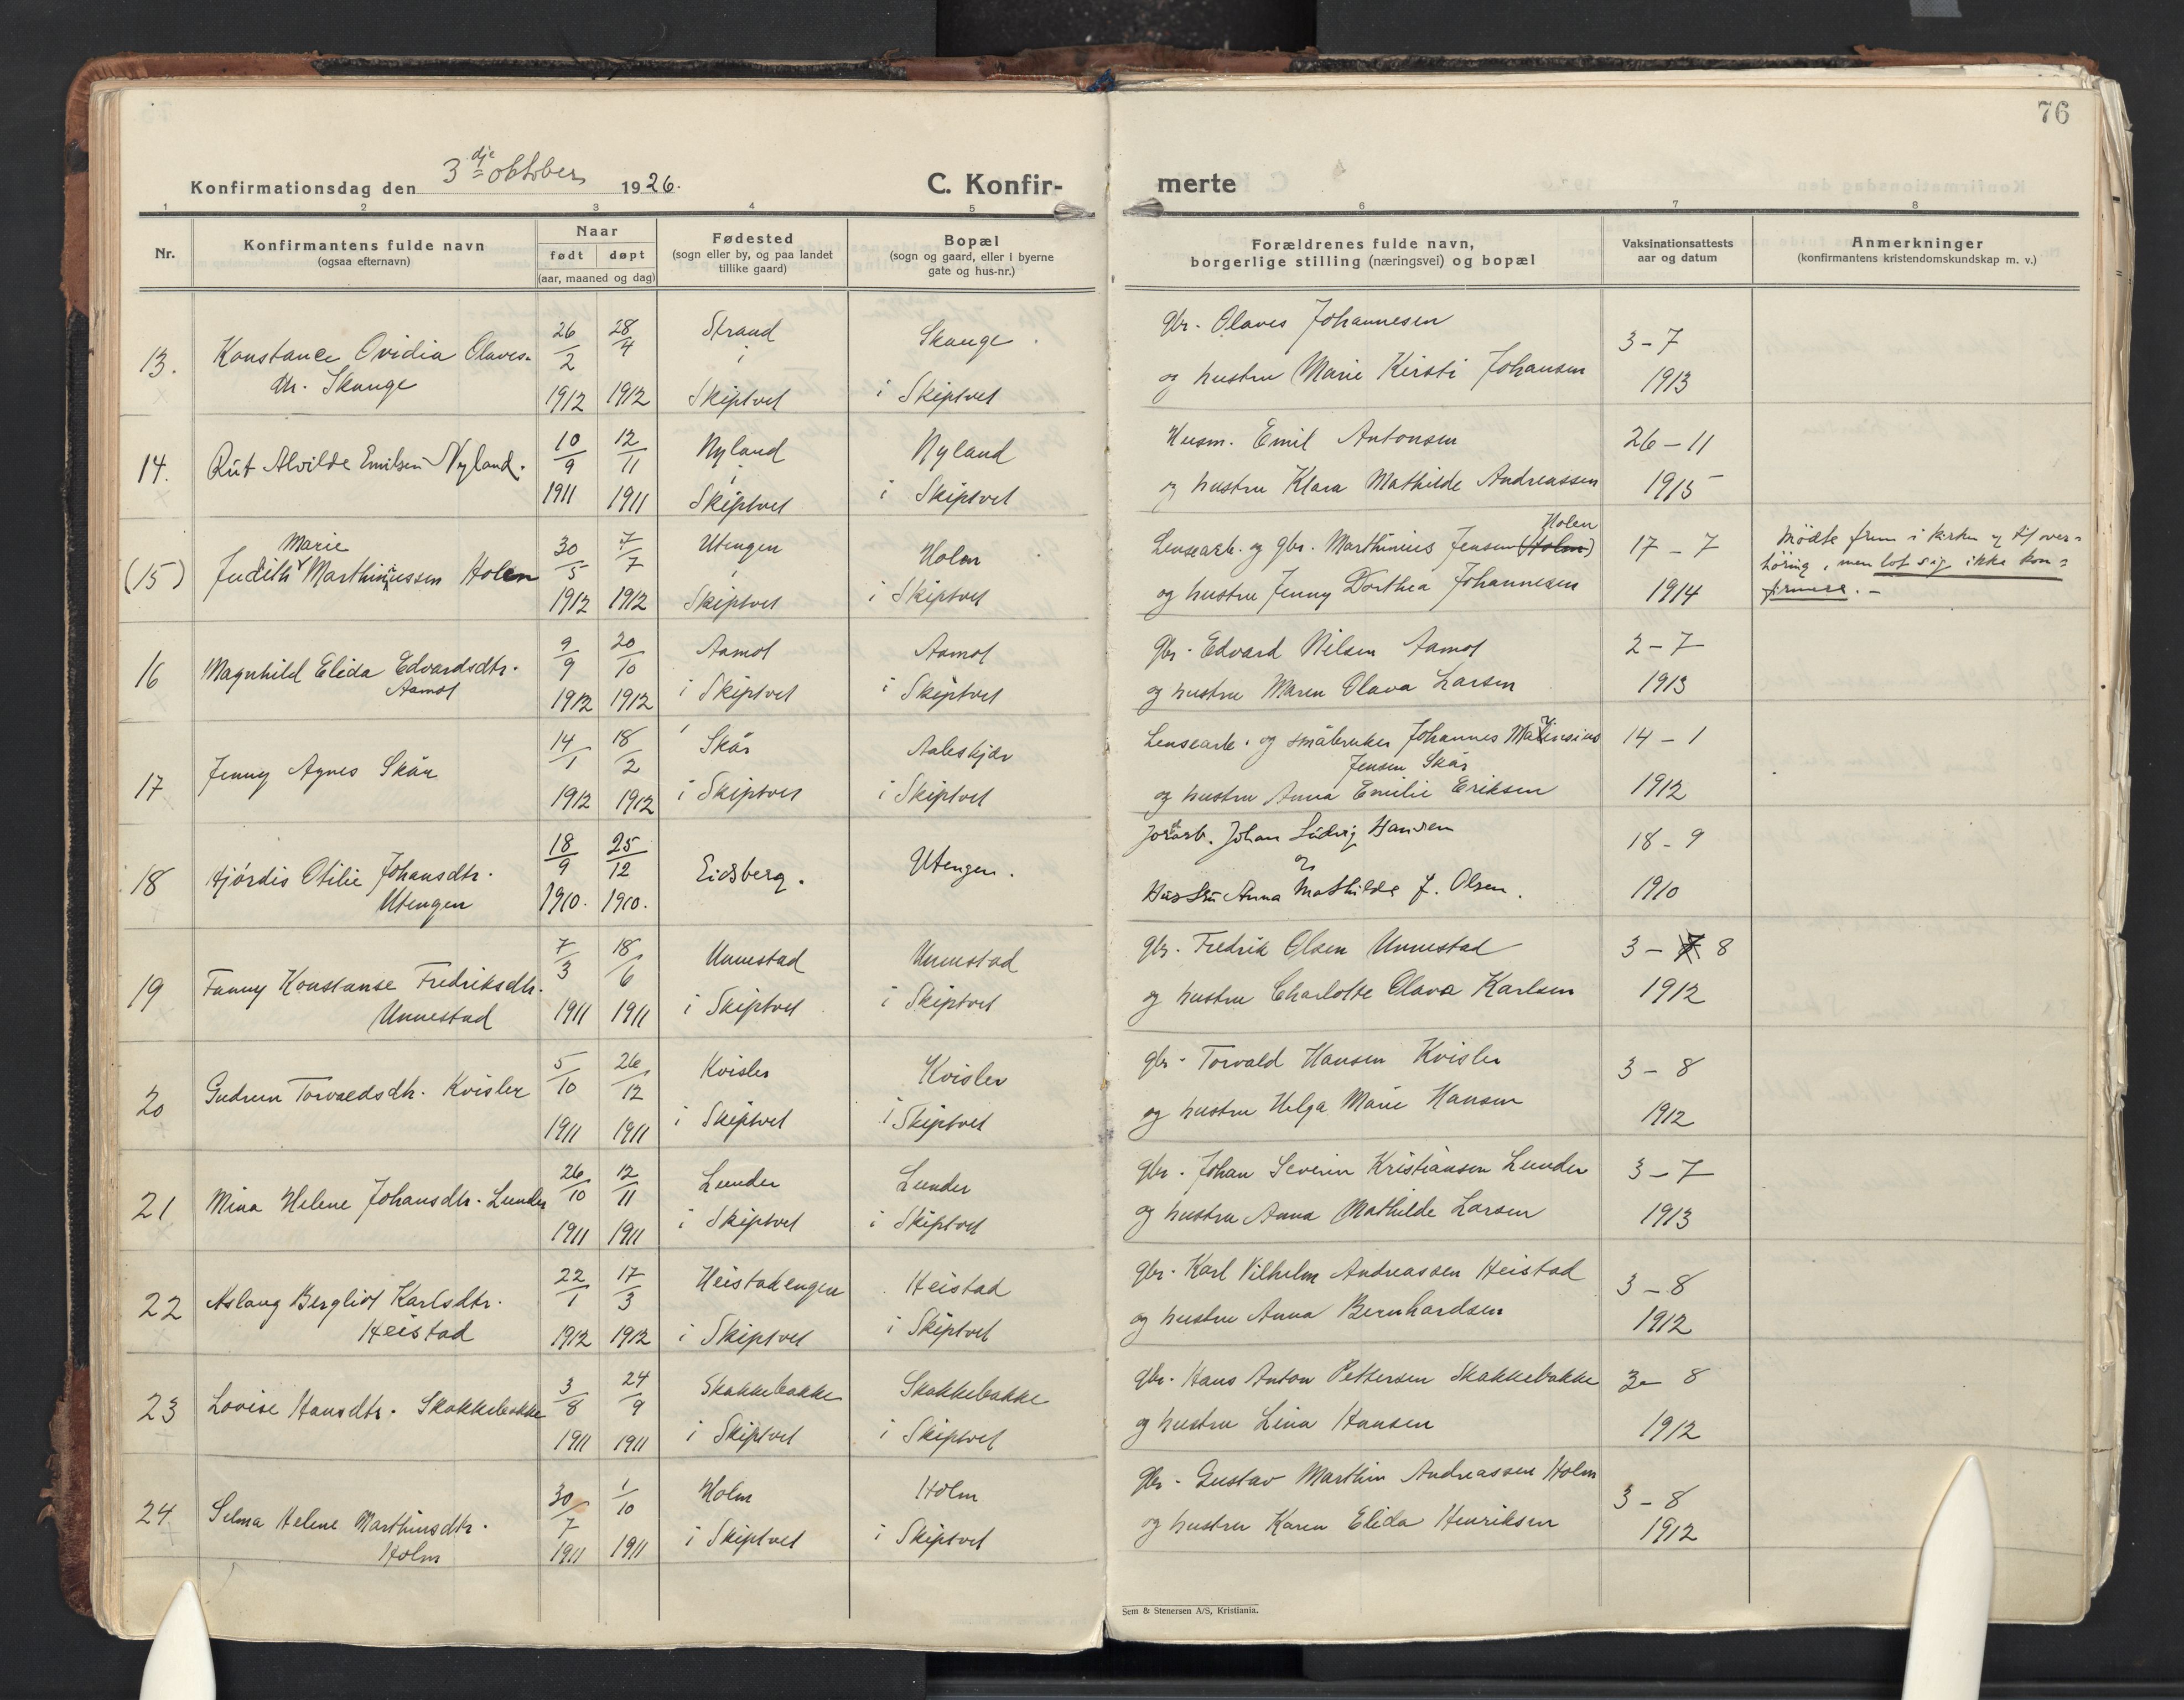 76
Konfirmationsdag den 3dje oktober 1926.
C. Konfir-merte
1 2 3 4 5 6 7 8
Nr.
Konfirmantens fulde navn
(ogsaa efternavn)
Naar
født døpt
(aar, maaned og dag)
Fødested
(sogn eller by, og paa landet
tillike gaard)
Bopæl
(sogn og gaard, eller i byerne
gate og hus-nr.)
Forældrenes fulde navn,
borgerlige stilling (næringsvei) og bopæl
Vaksinationsattests
aar og datum
Anmerkninger
(konfirmantens kristendomskundskap m. v.)
13. Konstance Ovidia Olaves-
dtr. Skauge
26/2 1912 28/4 1912
Strand
i
Skiptvet
Skauge
i Skiptvet
gbr. Olaves Johannesen
og hustru Marie Kirsti Johansen
3-7
1913
14. Rut Alvilde Emilsen Nyland.
10/9 1911 12/11 1911
Nyland
i
Skiptvet
Nyland
i Skiptvet
Husm. Emil Antonsen
og hustru Klara Mathilde Andreassen
26-11
1915
(15) Judith Marie Marthiniussen Holen
30/5 1912 7/7 1912
Utengen
i
Skiptvet
Holen
i Skiptvet
Lensearb. og gbr. Marthinius Jensen (Holm) Holen
og hustru Jenny Dorthea Johannesen
17-7
1914
Mødte frem i kirken og til over-
høring, men lot sig ikke kon-
firmere.-
16 Magnhild Elida Edvardsdtr.
Aamot
9/9 1912 20/10 1912
Aamot
i Skiptvet
Aamot
i Skiptvet
gbr. Edvard Nilsen Aamot
og hustru Maren Olava Larsen
2-7
1913
17 Jenny Agnes Skår
14/1 1912 18/2 1912
Skår
i Skiptvet
Aaleskjær
i Skiptvet
Lensearb. og småbruker Johannes
Jensen Skår
og hustru Anna Emilie Eriksen
14-1
1912
18 Hjørdis Otilie Johansdtr.
Utengen
18/9 1910. 25/12 1910.
Eidsberg.
Utengen.
Jordarb. Johan Ludvig Hansen
og
Hustru Anna Mathilde J. Olsen.
18-9
1910
19 Fanny Konstanse Fredriksdtr.
Unnestad
7/3 1911 18/6 1911
Unnestad
i Skiptvet
Unnestad
i Skiptvet
gbr. Fredrik Olsen Unnestad
og hustru Charlotte Olava Karlsen
3-7 8
1912
20 Gudrun Torvaldsdtr. Kvisler
5/10 1911 26/12 1911
Kvisler
i Skiptvet
Kvisler
i Skiptvet
gbr. Torvald Hansen Kvisler
og hustru Helga Marie Hansen
3-8
1912
21 Mina Helene Johansdtr. Lunder
26/10 1911 12/11 1911
Lunder
i Skiptvet
Lunder
i Skiptvet
gbr. Johan Severin Kristiansen Lunder
og hustru Anna Mathilde Larsen
3-7
1913
22 Aslaug Bergliot Karlsdtr.
Heistad
22/1 1912 17/3 1912
Heistadengen
i Skiptvet
Heistad
i Skiptvet
gbr. Karl Vilhelm Andreassen Heistad
og hustru Anna Bernhardsen
3-8
1912
23 Lovise Hansdtr. Skakkebakke
3/8 1911 24/9 1911
Skakkebakke
i Skiptvet
Skakkebakke
i Skiptvet
gbr. Hans Anton Pettersen Skakkebakke
og hustru Lina Hansen
3-8
1912
24 Selma Helene Marthinsdtr.
Holm
30/7 1911 1/10 1911
Holm
i Skiptvet
Holm
i Skiptvet
gbr. Gustav Marthin Andreassen Holm
og hustru Karen Elida Henriksen
3-8
1912
Sem & Stenersen A/S, Kristiania.